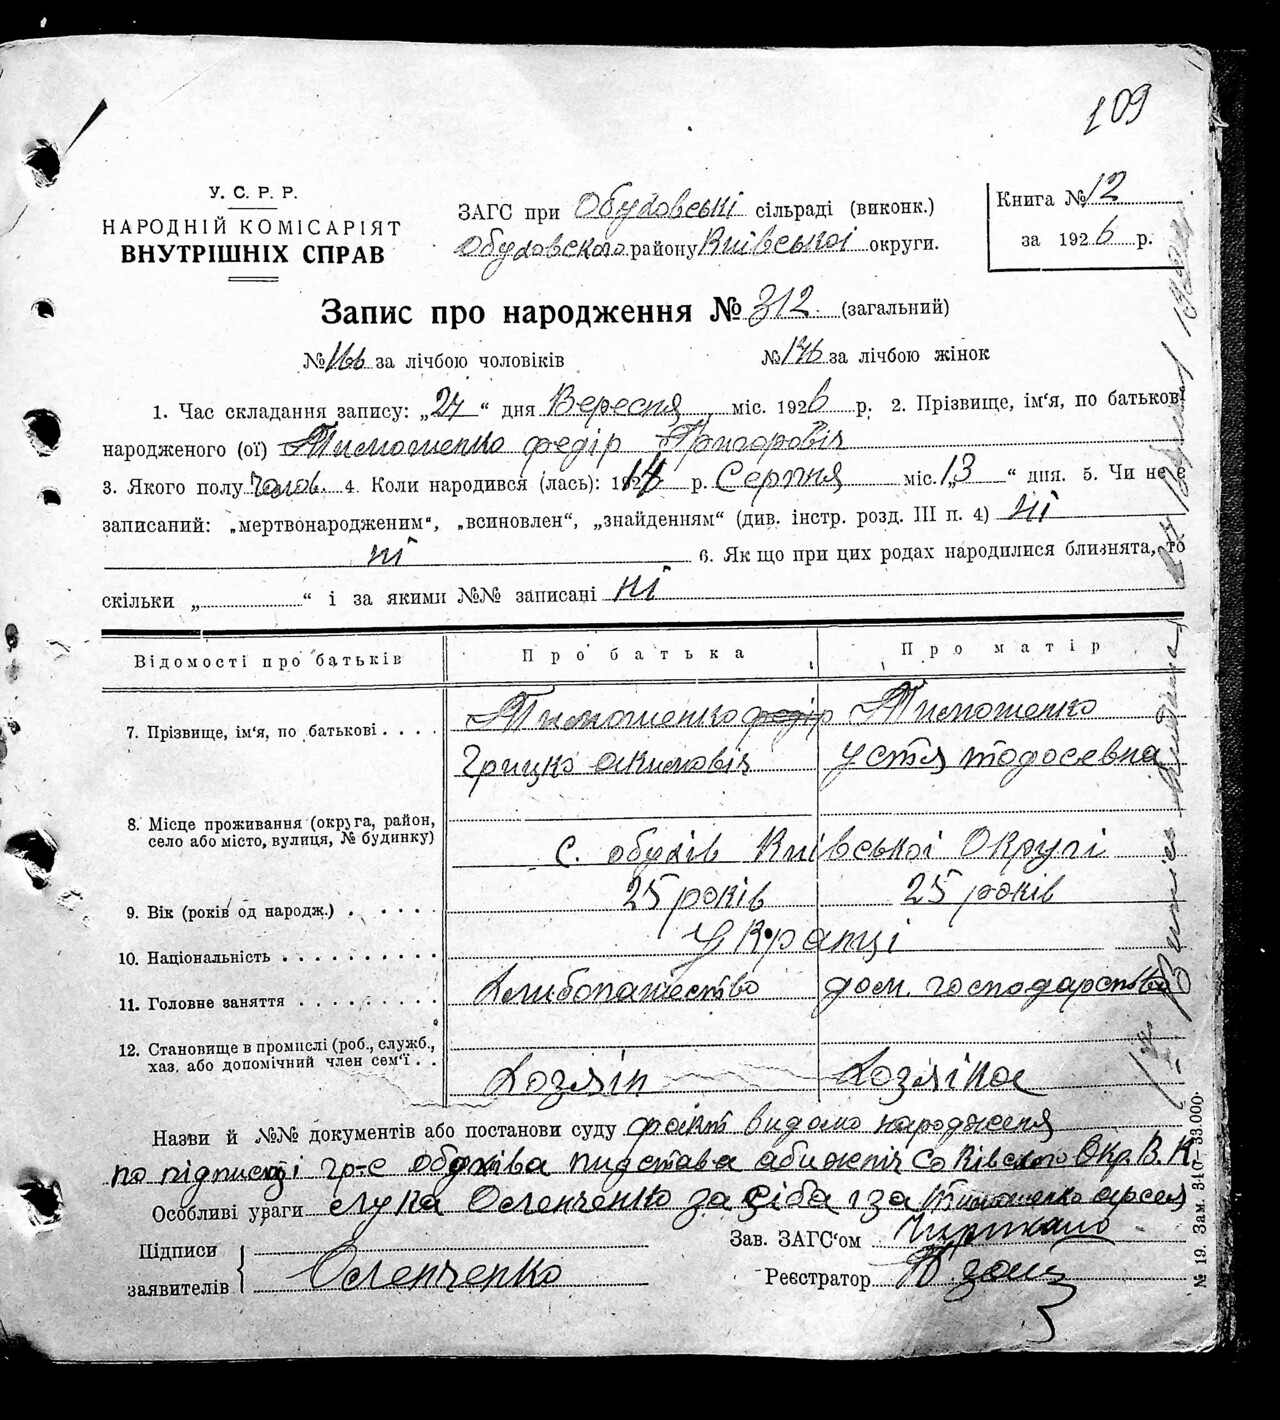 109
У. С. Р. Р.
НАРОДНІЙ КОМІСАРІЯТ
ВНУТРІШНІХ СПРАВ
ЗАГС при Обуховські сільраді (виконк.)
Обуховского району Київської округи.
Книга № 12
за 1926 р.
Запис про народження № 312. (загальний)
№ 166 за лічбою чоловіків
№ 146 за лічбою жінок
1. Час складання запису: „24“ дня Вересня міс. 1926 р. 2. Прізвище, ім'я, по батькові
народженого (ої) Тимошенко федір Григоровіч
3. Якого полу чолов. 4. Коли народився (лась): р. Серпня міс. „13“ дня. 5. Чи не є
записаний: „мертвонародженим“, „всиновлен“, „знайденням“ (див. інстр. розд. III п. 4) ні
ні 6. Як що при цих родах народилися близнята, то
скільки „ “ і за якими №№ записані ні
Відомості про батьків
Про батька
Про матір
7. Прізвище, ім'я, по батькові . . . .
Тимошенко федір
Грицко Акимовіч
Тимошенко
Устя тодосевна
8. Місце проживання (округа, район,
село або місто, вулиця, № будинку)
с. обухів Киівської Округі
9. Вік (років од народж.) . . . . .
25 років
25 років
10. Національність . . . . . . . . . .
Украпці
11. Головне заняття . . . . . . . . .
Хлибопашество
дом. господарство
12. Становище в промислі (роб., служб.,
хаз. або допомічний член сем'ї . .
Хозяін
Хозяіка
Назви й №№ документів або постанови суду факт видомо народженя
по підписці гр-с обухіва пидстава Окр. В. К.
Особливі уваги слука Осленченко за сіба і за Тимошенко
Підписи
заявителів
Осленченко
Зав. ЗАГС'ом
Реєстратор
№ 19. Зам. 310—33.000·